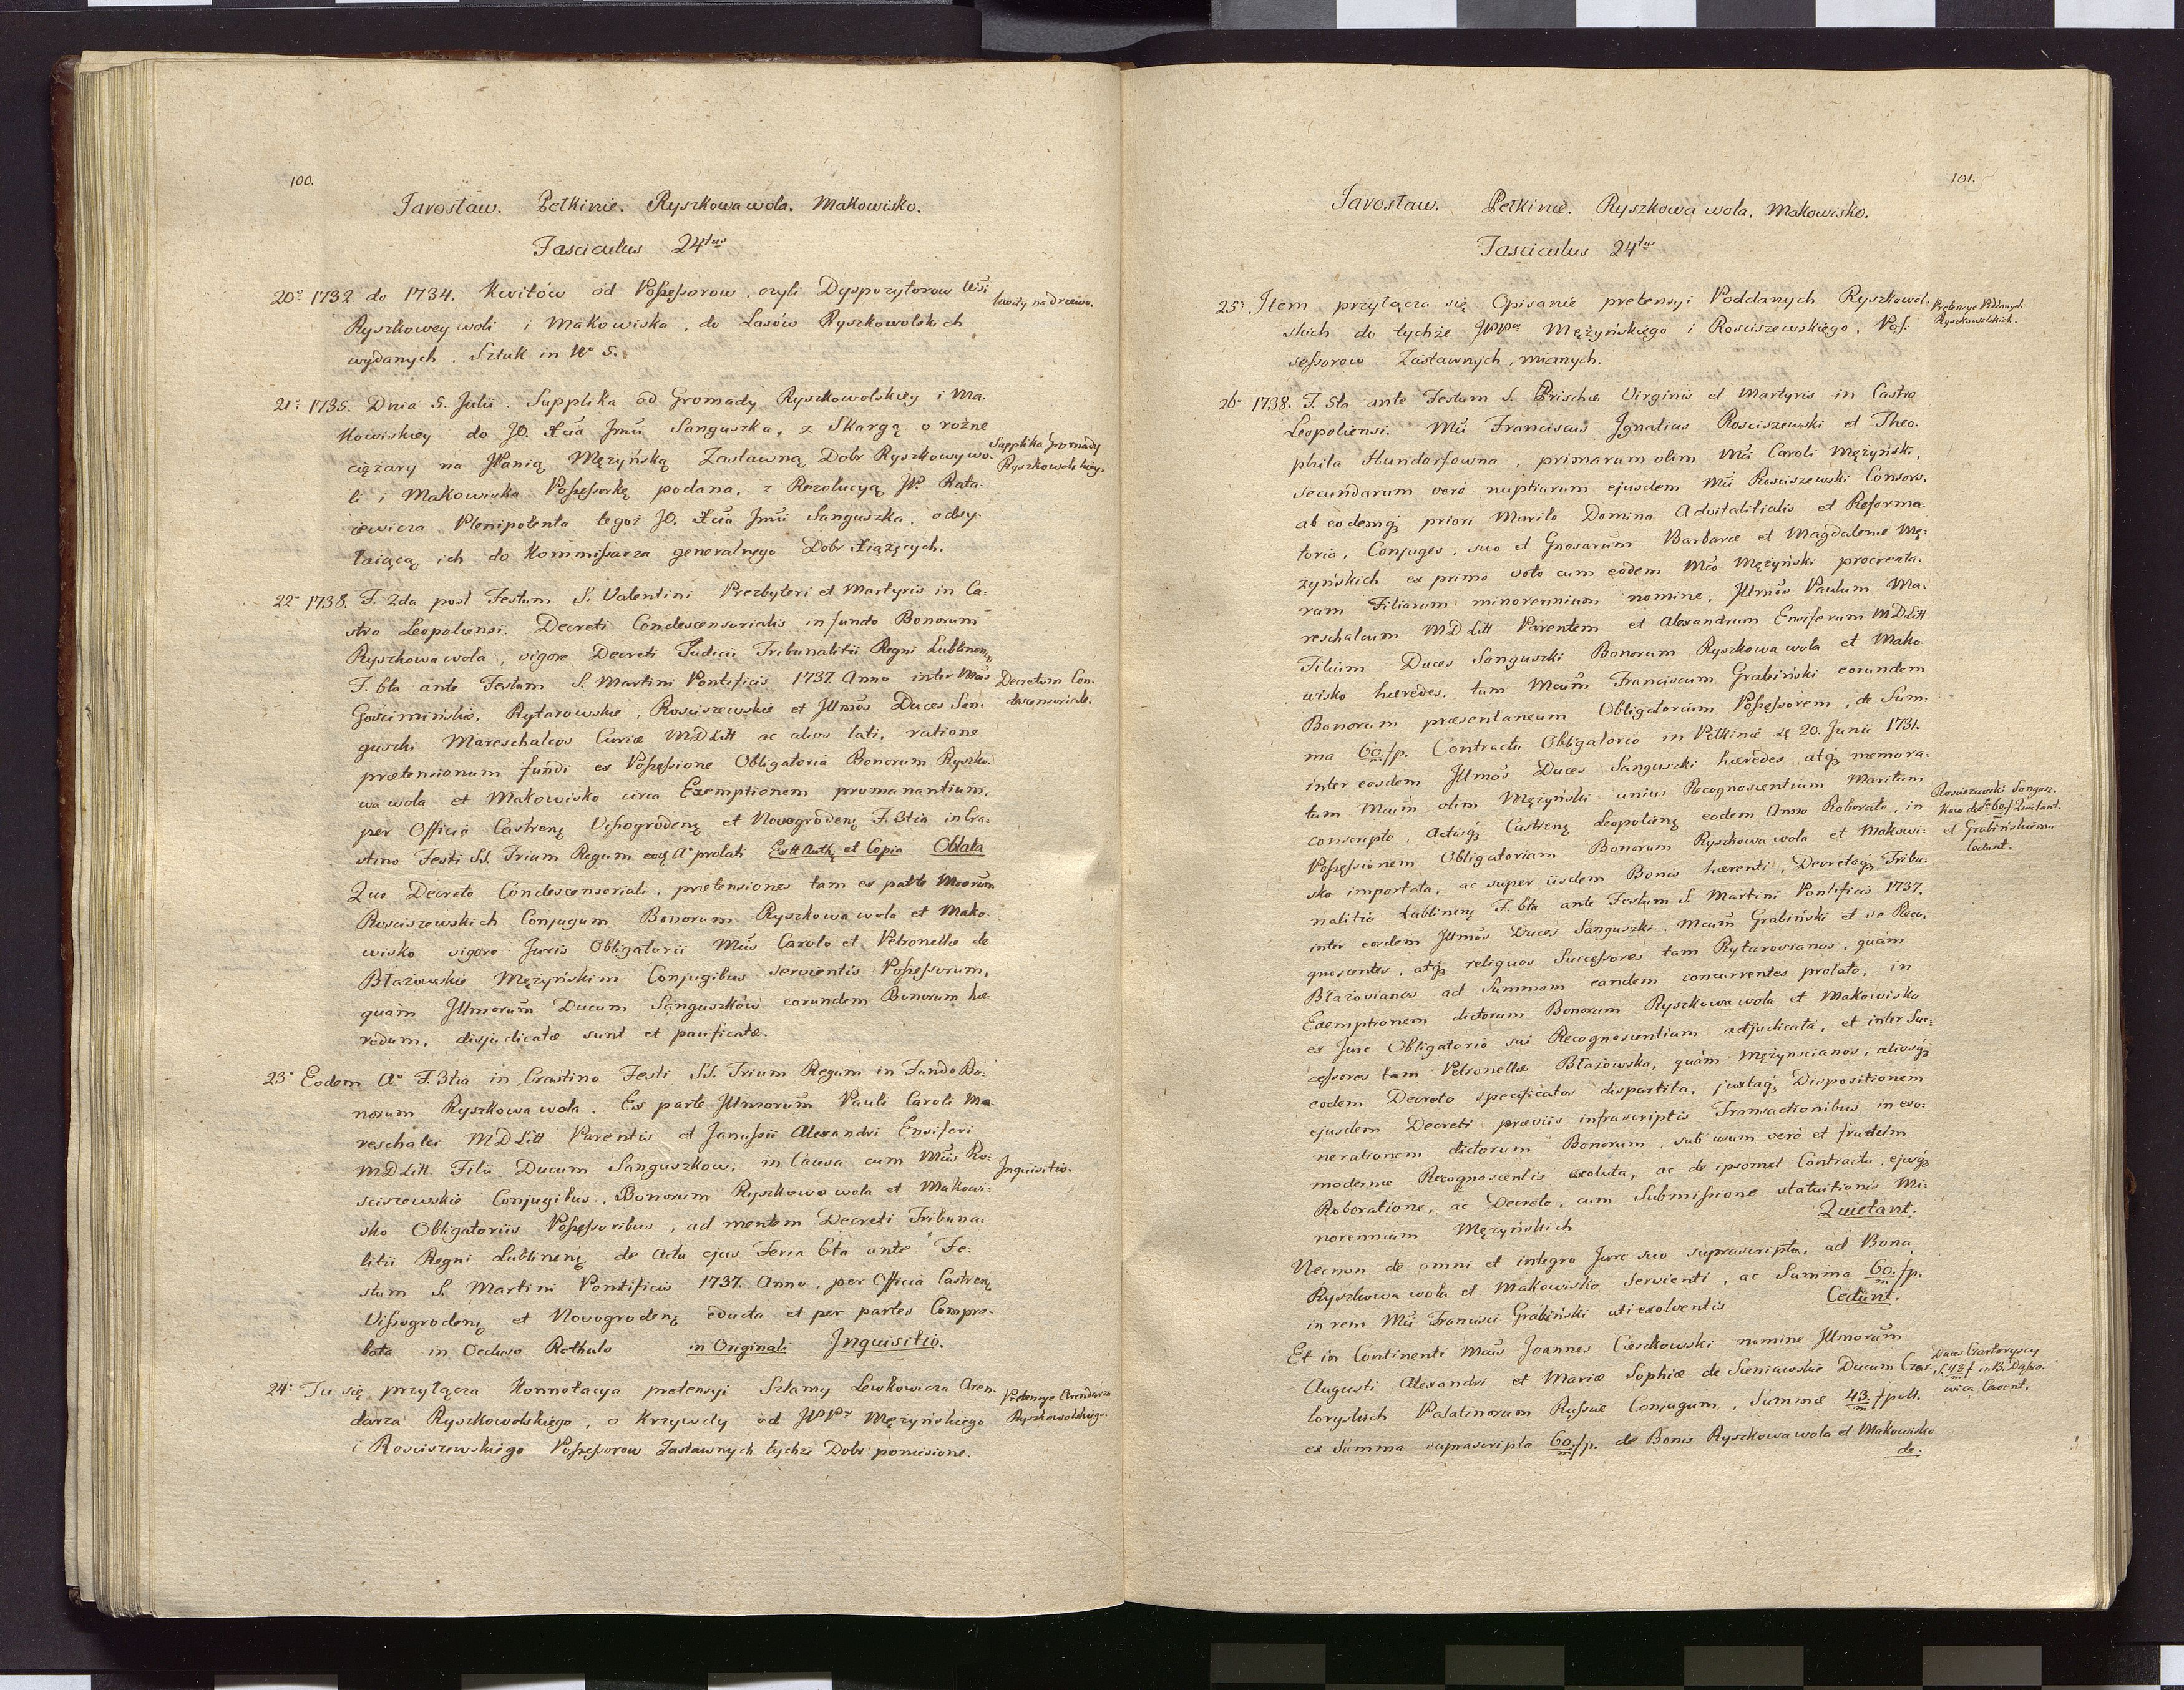 100.
Jarosław. Pełkinie. Ryszkowa wola. Makowisko.
Fasciculus 24tus
20o 1732 do 1734. Kwitów od Possessorow, czyli Dyspozytorow Wsi
Ryszkowey woli i Makowiska, do Lasów Ryszkowolskich
wydanych. Sztuk in No 5.
kwity na drzewo.
21o 1735. Dnia 5. Julii. Supplika od Gromady Ryszkowolskiey i Ma-
kowiskiey do JO. Xcia Jmci Sanguszka, z Skargą o rożne
ciężary na JPanią Mężyńską Zastawną Dobr Ryszkowy wo-
li i Makowiska Possessorkę podana, z Rezolucyą JP. Rata-
iewicza Plenipotenta tegoż JO. Xcia Jmci Sanguszka, odsy-
łaiącą ich do Kommissarza generalnego Dobr Xiążęcych.
Supplika Gromady
Ryszkowolskiey.
22o 1738. F. 2da post Festum S. Valentini Prezbyteri et Martyris in Ca-
stro Leopoliensi. Decreti Condescensorialis in fundo Bonorum
Ryszkowa wola, vigore Decreti Judicii Tribunalitii Regni Lublinenę
F. 6ta ante Festum S. Martini Pontificis 1737 Anno inter Mcos
Gościmińskie, Rytarowskie, Rościszewskie et Illmos Duces San-
guszki Mareschalcos Curiæ MDLitt ac alios lati, ratione
prætensionum fundi ex Possessione Obligatoria Bonorum Ryszko-
wa wola et Makowisko circa Exemptionem promanantium,
per Officia Castrenę Vissogrodenę et Novogrodenę F. 3tia in Cra-
stino Festi SS. Trium Regum eoq Ao prolati Extt Authę et Copia Oblata
Quo Decreto Condescensoriali, prætensiones tam ex parte Mcorum
Rosciszewskich Conjugum Bonorum Ryszkowa wola et Mako-
wisko vigore Juris Obligatorii Mcis Carolo et Petronellæ de
Błazowskie Mężyńskim Conjugibus servientis Possessorum,
quàm Illmorum Ducum Sanguszków eorundem Bonorum hæ-
redum, disjudicatæ sunt et pacificatæ.
Decretum Con-
descensoriale.
23o Eodem Ao F. 3tia in Crastino Festi SS. Trium Regum in Fundo Bo-
norum Ryszkowa wola. Ex parte Illmorum Pauli Caroli Ma-
reschalci MDLitt Parentis et Janussii Alexandri Ensiferi
MDLitt. Filii Ducum Sanguszkow, in Causa cum Mcis Ro-
sciszewskie Conjugibus, Bonorum Ryszkowa wola et Makowi-
sko Obligatoriis Possessoribus, ad mentem Decreti Tribuna-
litii Regni Lublinenę de actu ejus Feria 6ta ante Fe-
stum S. Martini Pontificis 1737. Anno, per Officia Castrenę
Vissogrodenę et Novogrodenę educta et per partes Compro-
bata in Occluso Rothulo in Originali Inquisitio.
Inquisitio.
24o Tu się przyłącza Konnotacya pretensyi Szlamy Lewkowicza Aren-
darza Ryszkowolskiego, o krzywdy od JWPr Mężyńskiego
i Rosciszewskiego Possessorow Zastawnych tychże Dobr poniesione.
Pretensye Arendarza
Ryszkowolskiego.
101.
Jarosław. Pełkinie. Ryszkowa wola, Makowisko.
Fasciculus 24tus
25o Item przyłącza się Opisanie pretensyi Poddanych Ryszkowol-
skich do tychże JWPPw Mężyńskiego i Rosciszewskiego, Pos-
sessorow Zastawnych, mianych.
Pretensye Poddanych
Ryszkowolskich.
26o 1738. F. 5ta ante Festum S. Priscæ Virginis et Martyris in Castro
Leopoliensi. Mci Franciscus Ignatius Rosciszewski et Theo-
phila Hundorfowna, primarum olim Mci Caroli Mężyński,
secundarum verò nuptiarum ejusdem Mci Rosciszewski Consors,
ab eodemq priori Marito Domina Advitalitialis et Reforma-
toria, Conjuges, suo et Gnosarum Barbaræ et Magdalenæ Mę-
żyńskich ex primo voto cum eodem Mco Mężyński procreata-
rum Filiarum minorennium nomine, Illmos Paulum Ma-
reschalcum MDLitt Parentem et Alexandrum Ensiferum MDLitt
Filium Duces Sanguszki Bonorum Ryszkowa wola et Mako-
wisko hæredes, tum Mcum Franciscum Grabiński eorundem
Bonorum præsentaneum Obligatorium Possessorem, de Sum-
ma 60/m fp. Contractu Obligatorio in Pełkinie de 20. Junii 1731.
inter eosdem Illmos Duces Sanguszki hæredes atq memora-
tum Mcum olim Mężyński unius Recognoscentium Maritum
conscripto, actisq Castrenę Leopolienę eodem Anno Roborato, in
Possessionem Obligatoriam Bonorum Ryszkowa wola et Makowi-
sko importata, ac super iisdem Bonis hærenti, Decretoq Tribu-
nalitio Lublinenę F. 6ta ante Festum S. Martini Pontificis 1737.
inter eosdem Illmos Duces Sanguszki, Mcum Grabiński et se Reco-
gnoscentes, atq reliquos Successores tam Rytarovianos, quàm
Błazovianos ad Summam eandem concurrentes prolato, in
Exemptionem dictorum Bonorum Ryszkowa wola et Makowisko
ex Jure Obligatorio sui Recognoscentium adjudicatâ, et inter Suc-
cessores tam Petronellæ Błazowska, quàm Mężynscianos, aliosq
eodem Decreto specificatos dispartita, juxtaq Dispositionem
ejusdem Decreti præviis infrascriptis Transactionibus, in exo-
nerationem dictorum Bonorum, sub usum verò et fructum
modernæ Recognoscentis exoluta, ac de ipsomet Contractu, ejusq
Roboratione, ac Decreto, cum Submissione statuitionis Mi-
norennium Mężyńskich Quietant.
Necnon de omni et integro Jure suo suprascripto, ad Bona
Ryszkowa wola et Makowisko Servienti, ac Summa 60/m fp.
in rem Mci Francisci Grabiński uti exolventis Cedunt.
Rosciszewski Sangusz-
kow de Sa 60/m f Quitant.
et Grabińskiemu
Cedunt.
Et in Continenti Mcus Joannes Cieszkowski nomine Illmorum
Augusti Alexandri et Mariæ Sophiæ de Sieniawskie Ducum Czar-
toryskich Palatinorum Russiæ Conjugum, Summæ 43/m fpoll.
ex Summa suprascripta 60/m fp. de Bonis Ryszkowa wola et Makowisko
de-
Duces Czartoryscy
S. 43/m f in B. Dąbro-
wica Cavent.